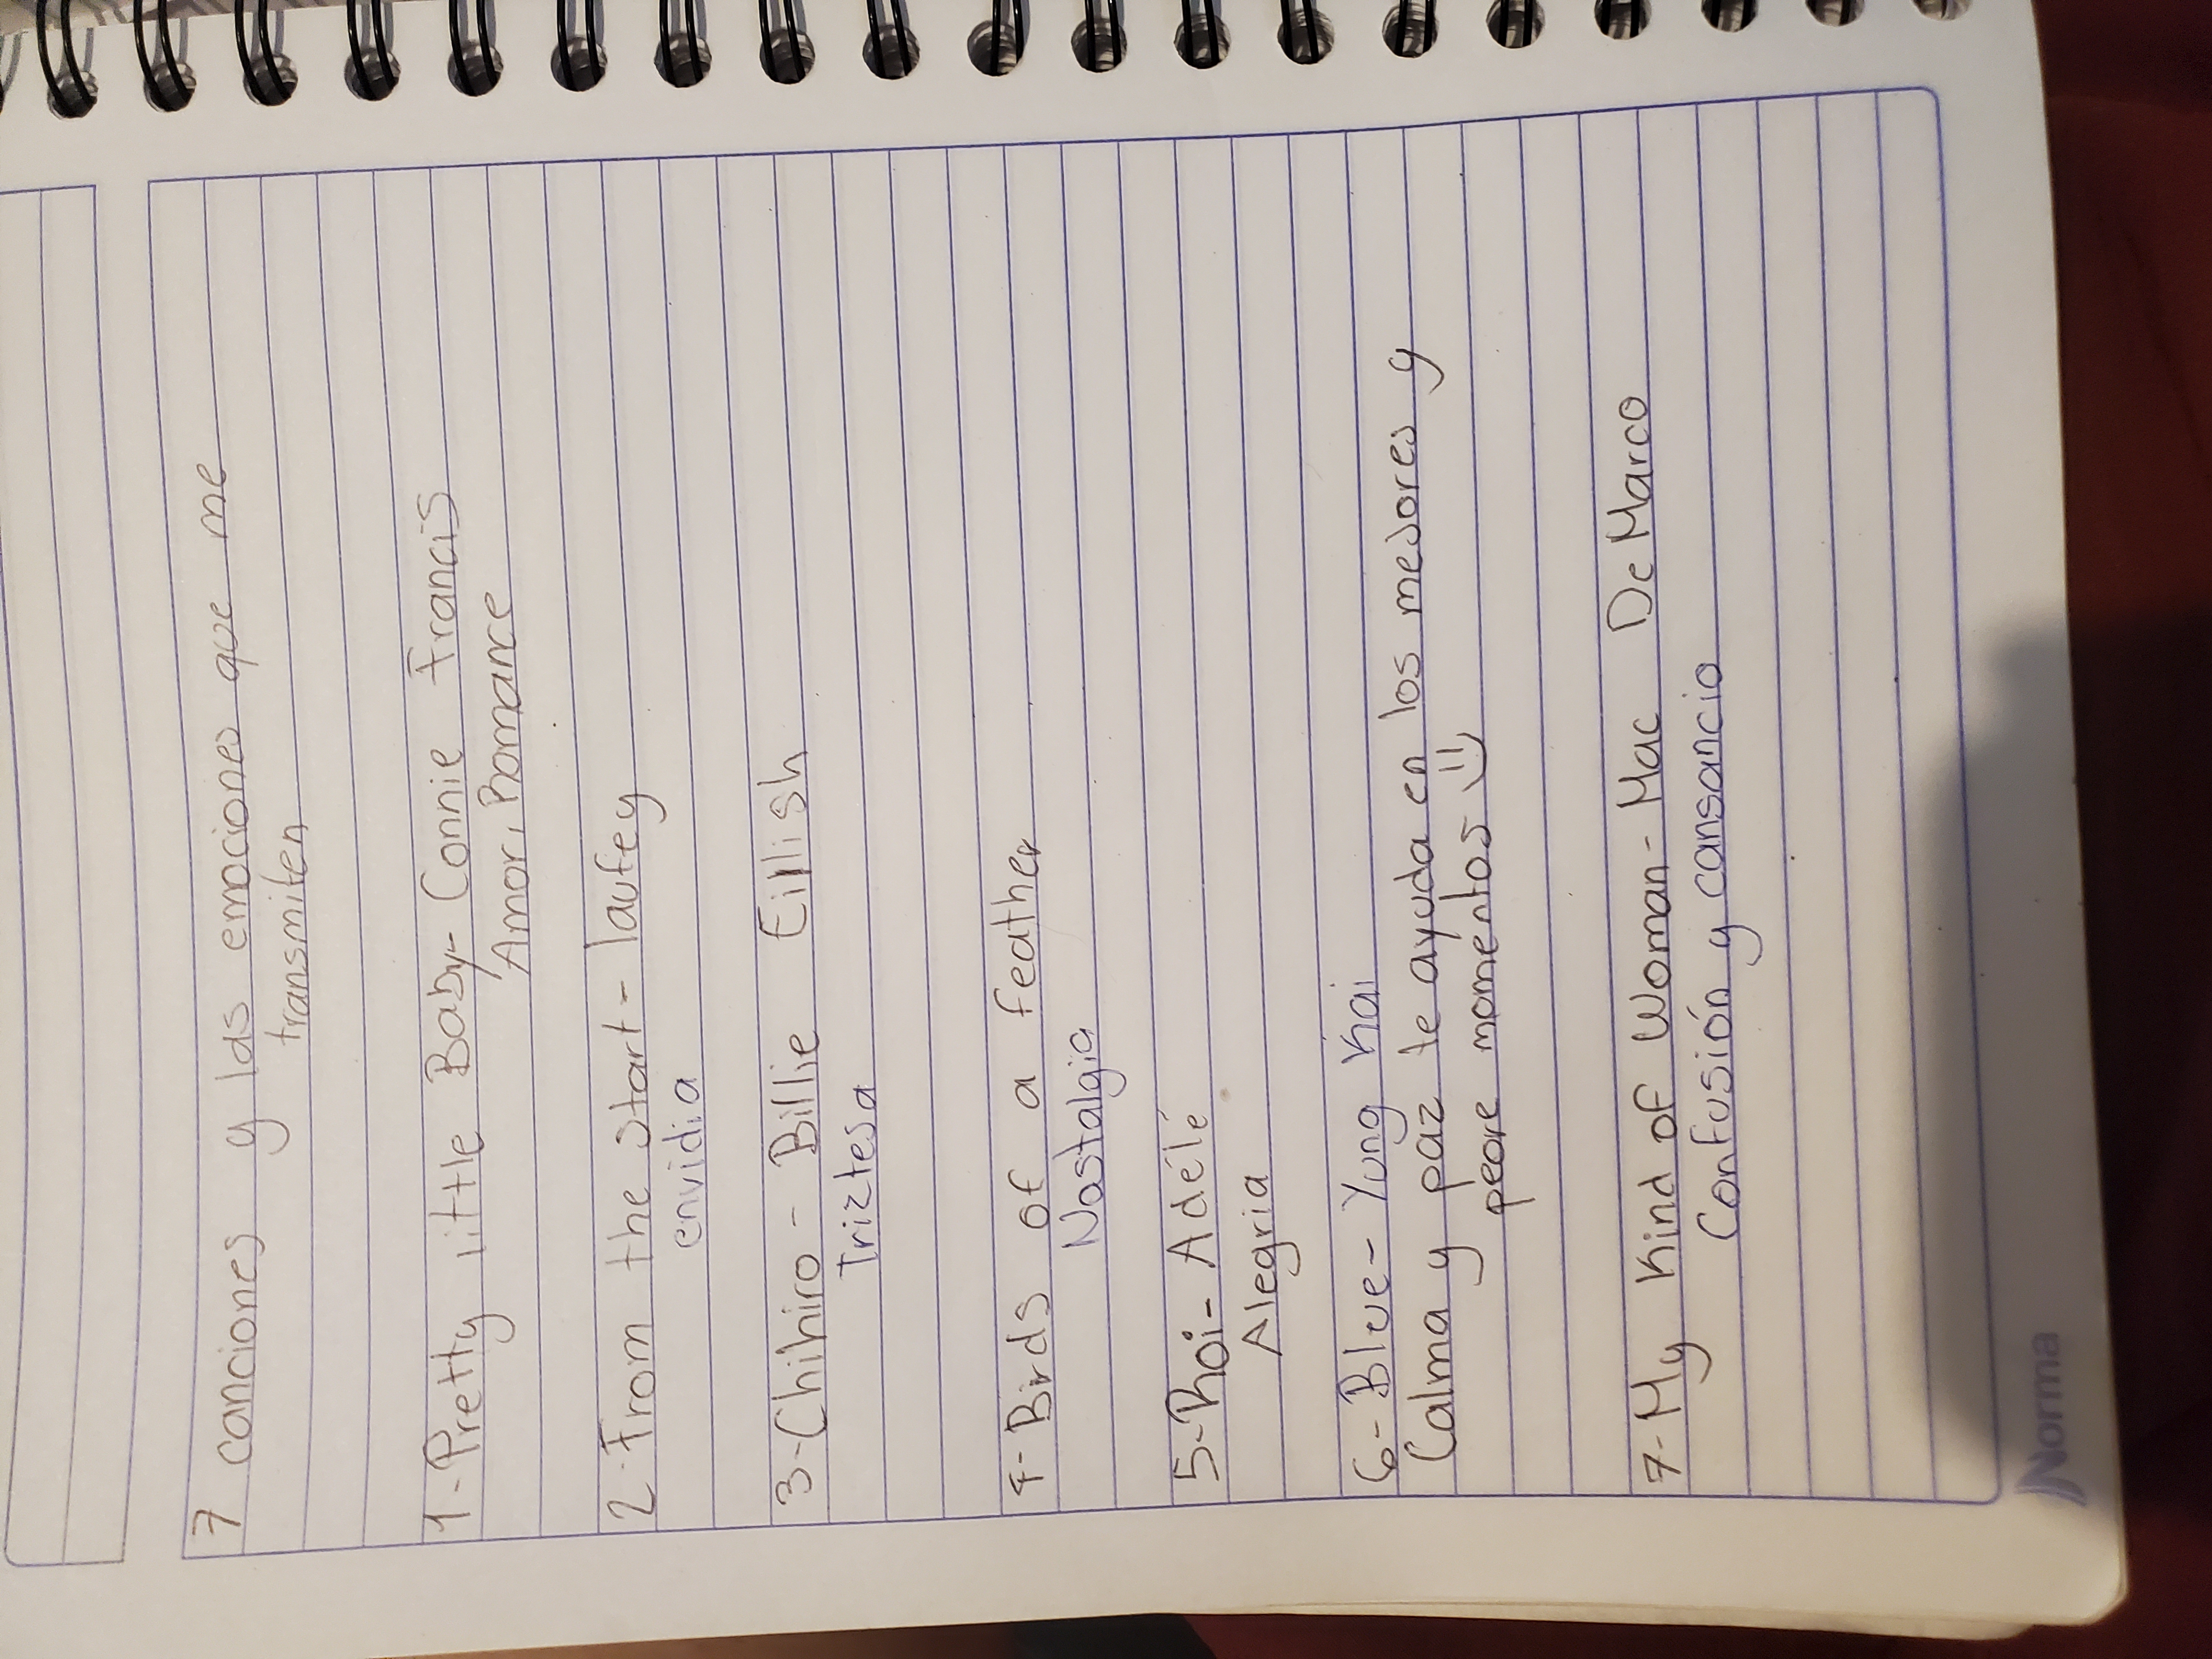 7 canciones y las emociones que me
transmiten
1-Pretty little Baby- Connie Francis
Amor, Romance
2-From the start- laufey
envidia
3-Chihiro - Billie Eillish
Triztesa
4-Birds of a feather
Nostalgia
5-Roi- Adélé
Alegria
6-Blue- Yung Kai
Calma y paz te ayuda en los mejores y
peore momentos
7-My Kind of Woman-Mac DeMarco
Confusión y cansancio
Norma